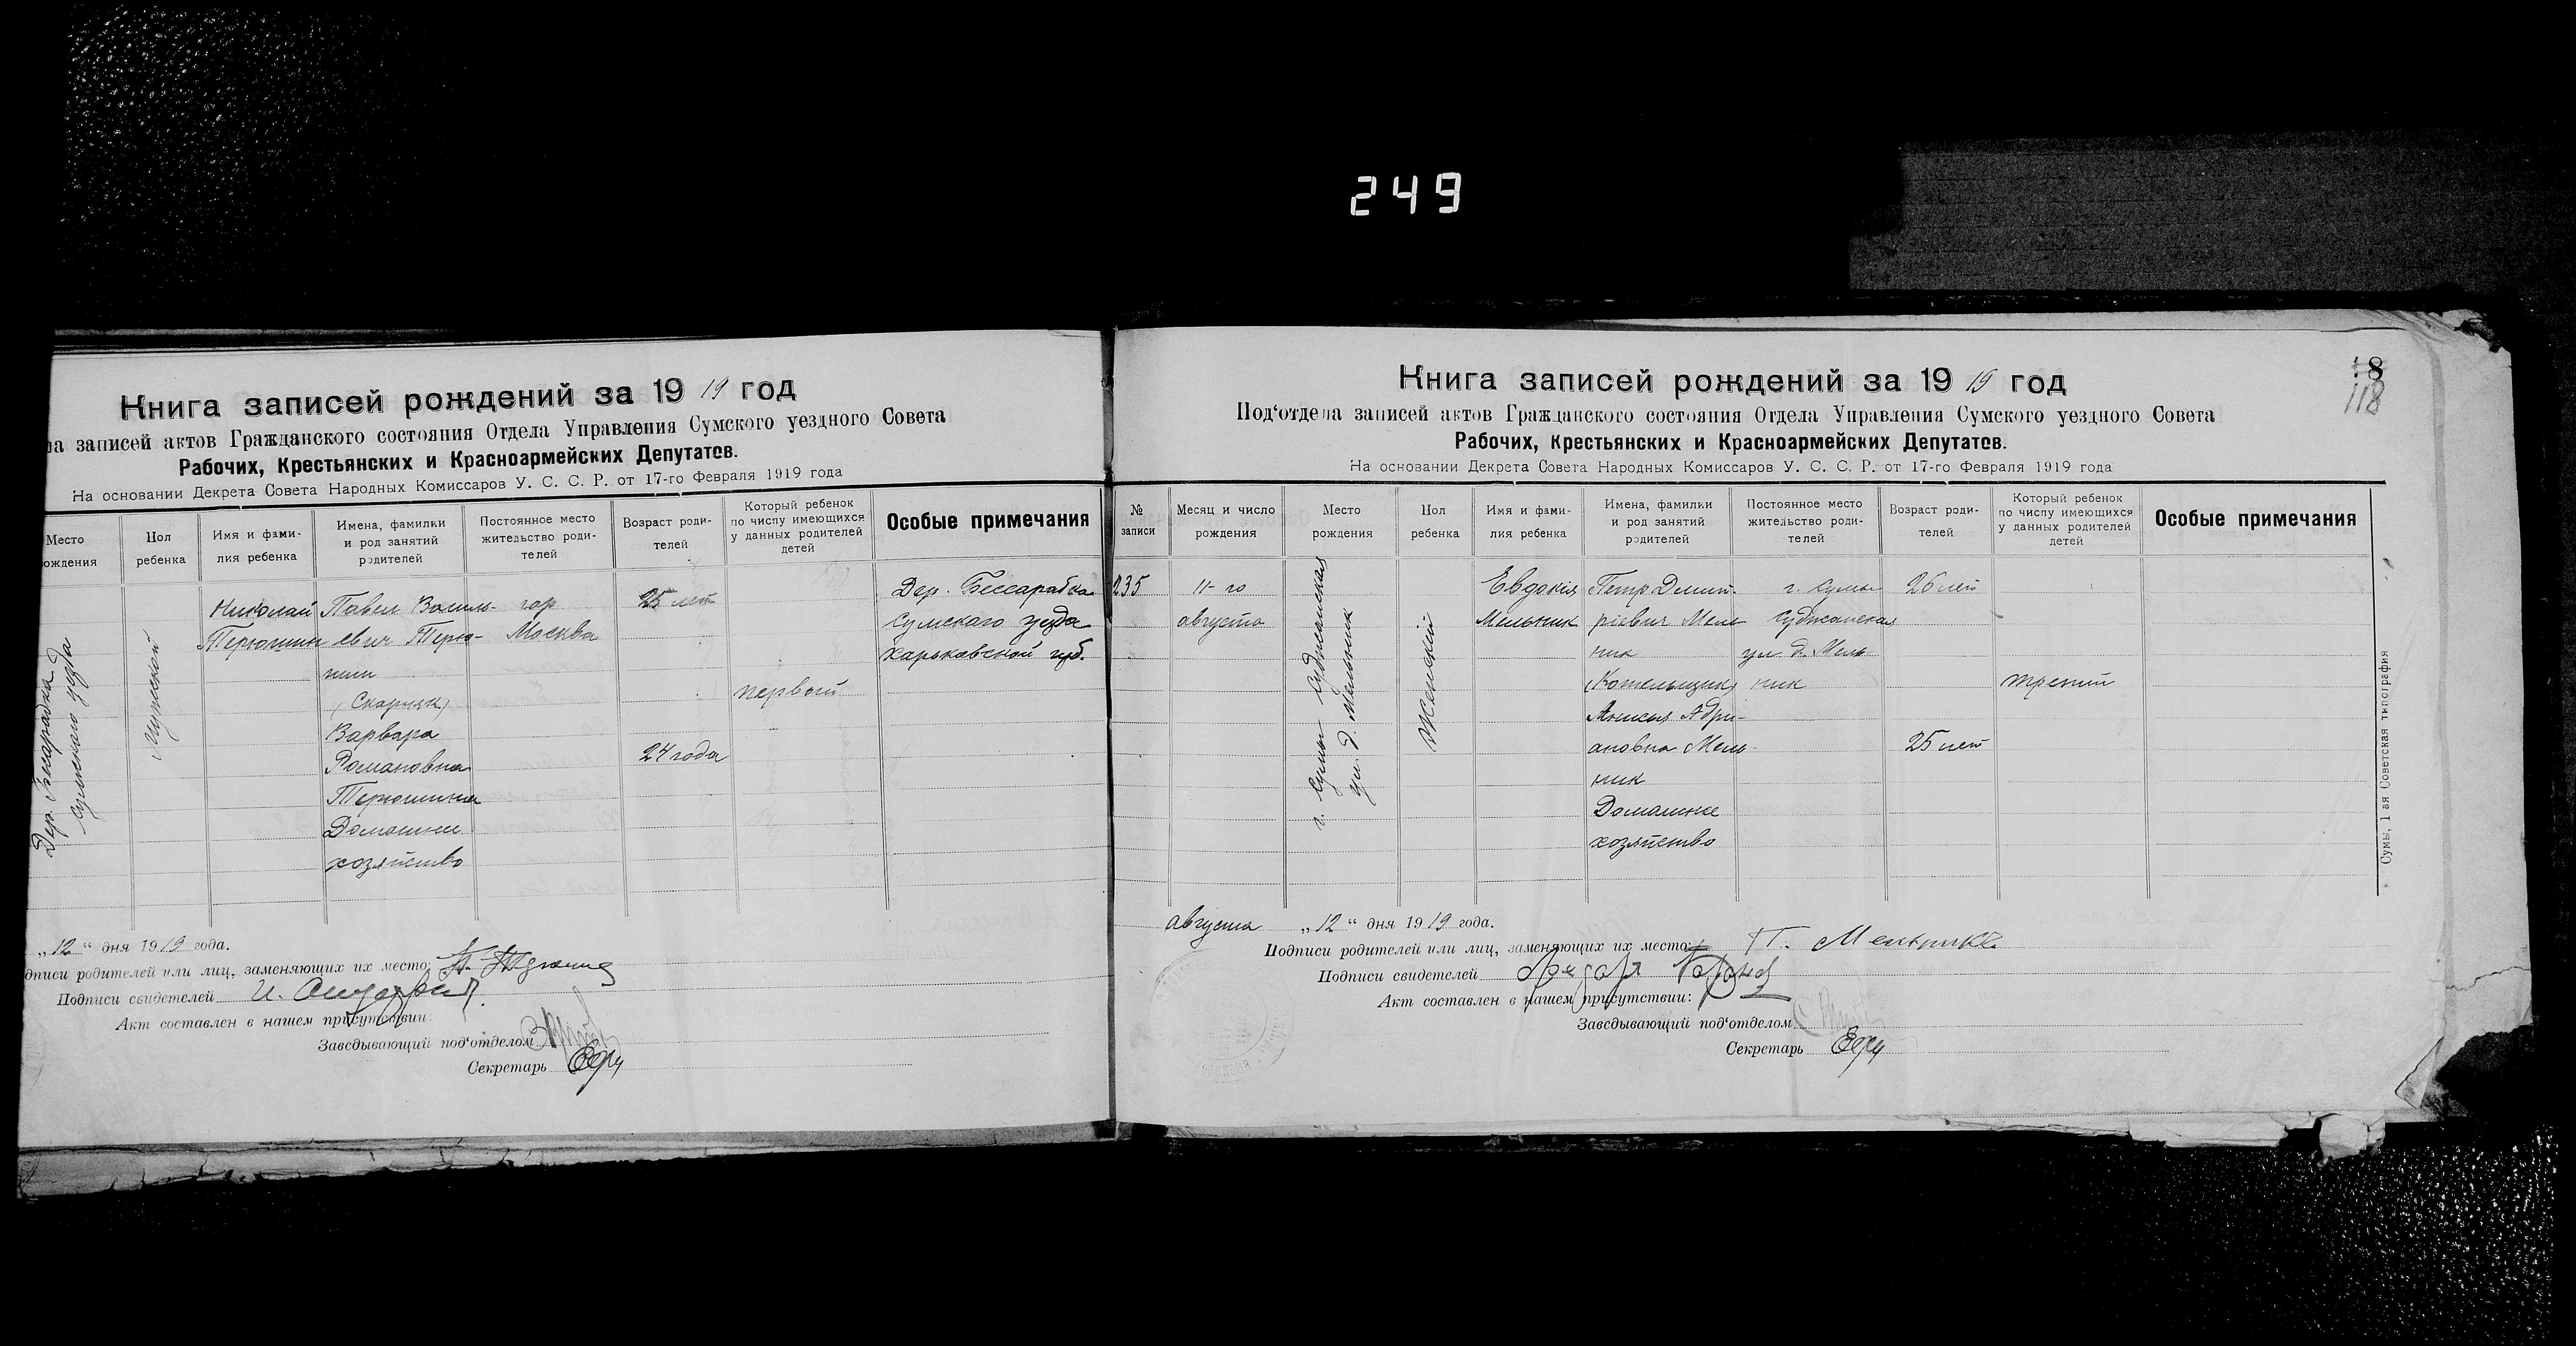 249
Книга записей рождений за 19 19 год
на записей актов Гражданского состояния Отдела Управления Сумского уездного Совета
Рабочих, Крестьянских и Красноармейских Депутатов.
На основании Декрета Совета Народных Комиссаров У. С. С. Р. от 17-го Февраля 1919 года
Место
рождения
Пол
ребенка
Имя и фами-
лия ребенка
Имена, фамилки
и род занятий
родителей
Постоянное место
жительство роди-
телей
Возраст роди-
телей
Который ребенок
по числу имеющихся
у данных родителей
детей
Особые примечания
Дер. Бессарабка
Сумского уезда
Мужской
Николай
Терюшин
Павел Василь-
евич Терю-
шин
(Скорняк)
Варвара
Романовна
Терюшина
Домашнее
хозяйство
гор.
Москва
25 лет
24 года
первый
Дер. Бессарабка
Сумского уезда
Харьковской губ.
„12“ дня 1919 года.
дписи родителей или лиц, заменяющих их место:
Подписи свидетелей
Акт составлен в нашем присутствии:
Заведывающий под‘отделом
Секретарь
18
118
Книга записей рождений за 19 19 год
Под‘отдела записей актов Гражданского состояния Отдела Управления Сумского уездного Совета
Рабочих, Крестьянских и Красноармейских Депутатов.
На основании Декрета Совета Народных Комиссаров У. С. С. Р. от 17-го Февраля 1919 года
№
записи
Месяц и число
рождения
Место
рождения
Пол
ребенка
Имя и фами-
лия ребенка
Имена, фамилки
и род занятий
родителей
Постоянное место
жительство роди-
телей
Возраст роди-
телей
Который ребенок
по числу имеющихся
у данных родителей
детей
Особые примечания
235
11-го
августа
г. Сумы Суджанская
ул. д. Мельник
Женский
Евдокія
Мельник
Петр Дмит-
ріевич Мель-
ник
(Котельщик)
Анисья Адри-
ановна Мель-
ник
Домашнее
хозяйство
г. Сумы
Суджанская
ул. д. Мель-
ник
26 лет
25 лет
третий
августа „12“ дня 1919 года.
Подписи родителей или лиц, заменяющих их место: П. Мельник
Подписи свидетелей
Акт составлен в нашем присутствии:
Заведывающий под‘отделом
Секретарь
Сумы, 1 ая Советская типография